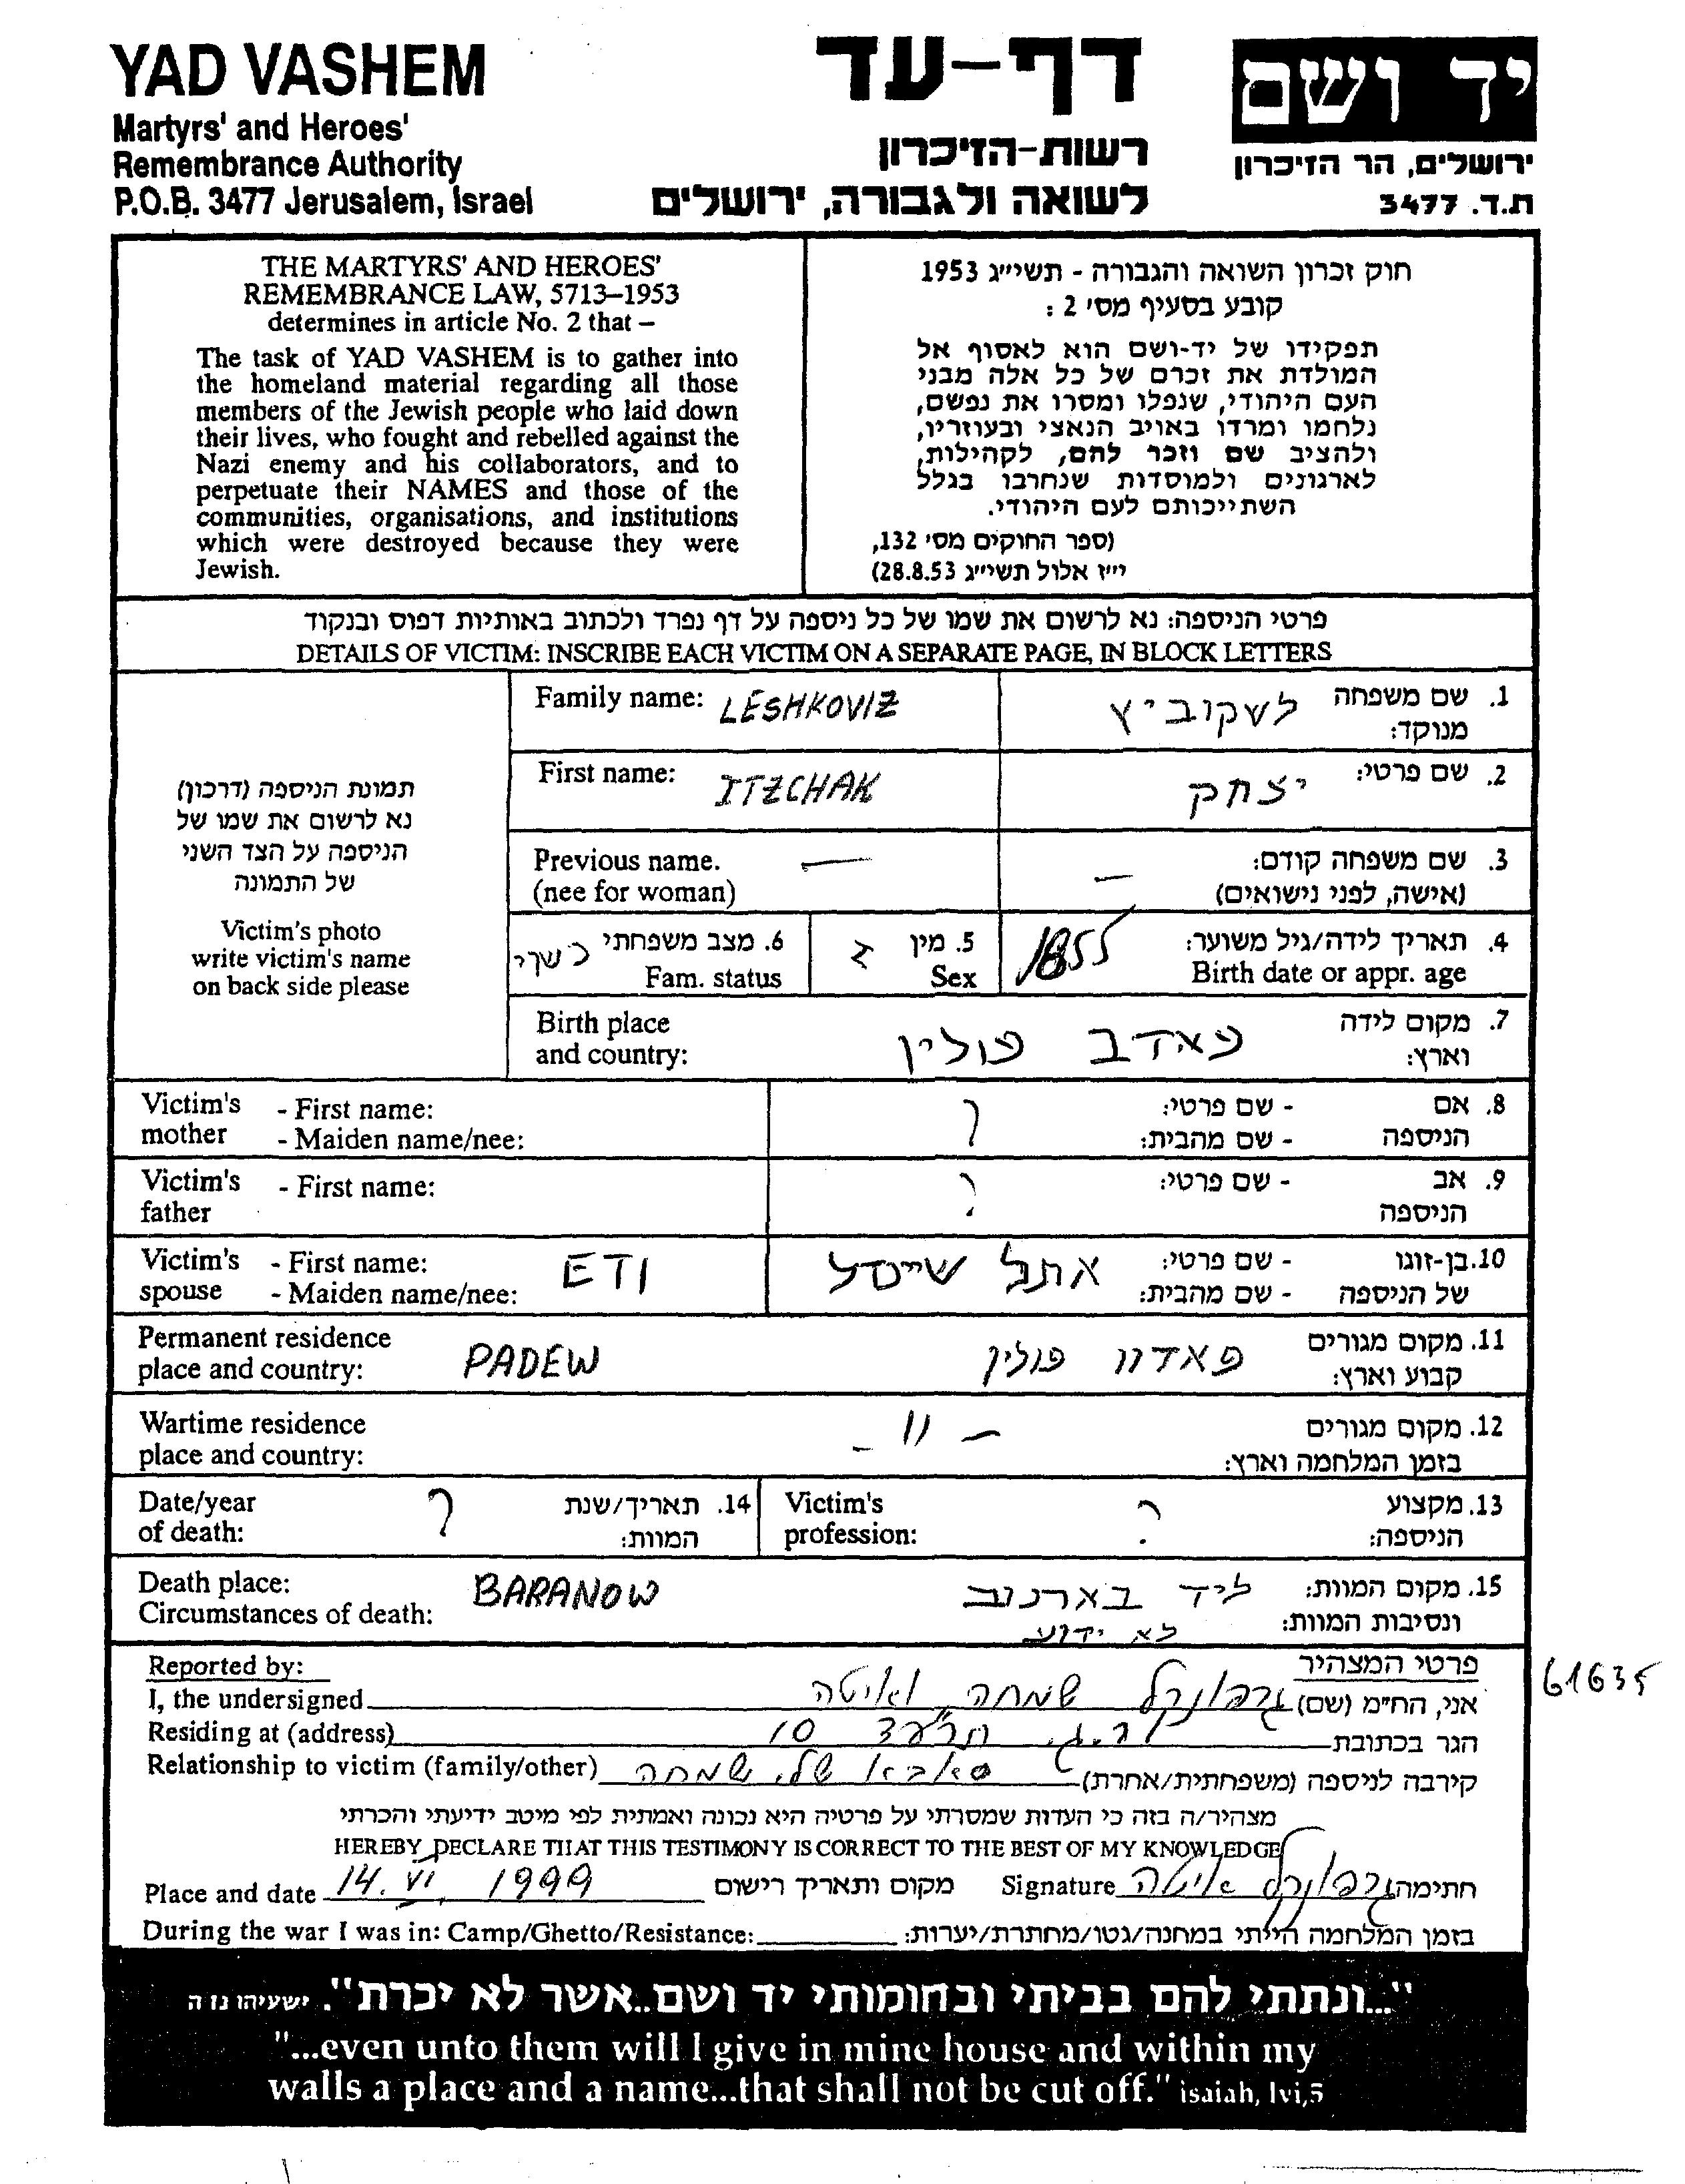 YAD VASHEM
Martyrs' and Heroes'
Remembrance Authority
P.O.B. 3477 Jerusalem, Israel
דף-עד
רשות-הזיכרון
לשואה ולגבורה, ירושלים
יד ושם
ירושלים, הר הזיכרון
ת.ד. 3477
THE MARTYRS' AND HEROES'
REMEMBRANCE LAW, 5713–1953
determines in article No. 2 that –
The task of YAD VASHEM is to gather into
the homeland material regarding all those
members of the Jewish people who laid down
their lives, who fought and rebelled against the
Nazi enemy and his collaborators, and to
perpetuate their NAMES and those of the
communities, organisations, and institutions
which were destroyed because they were
Jewish.
חוק זכרון השואה והגבורה - תשי״ג 1953
קובע בסעיף מס׳ 2 :
תפקידו של יד-ושם הוא לאסוף אל
המולדת את זכרם של כל אלה מבני
העם היהודי, שנפלו ומסרו את נפשם,
נלחמו ומרדו באויב הנאצי ובעוזריו,
ולהציב שם וזכר להם, לקהילות,
לארגונים ולמוסדות שנחרבו בגלל
השתייכותם לעם היהודי.
(ספר החוקים מס׳ 132,
י״ז אלול תשי״ג 28.8.53)
פרטי הניספה: נא לרשום את שמו של כל ניספה על דף נפרד ולכתוב באותיות דפוס ובנקוד
DETAILS OF VICTIM: INSCRIBE EACH VICTIM ON A SEPARATE PAGE, IN BLOCK LETTERS
תמונת הניספה (דרכון)
נא לרשום את שמו של
הניספה על הצד השני
של התמונה
Victim's photo
write victim's name
on back side please
Family name: LESHKOVIZ לשקוביץ 1. שם משפחה
מנוקד:
First name: ITZCHAK יצחק 2. שם פרטי:
Previous name. — — 3. שם משפחה קודם:
(nee for woman) (אישה, לפני נישואים)
6. מצב משפחתי 5. מין ז 1855 4. תאריך לידה/גיל משוער:
Fam. status Sex Birth date or appr. age
Birth place פאדב פולין 7. מקום לידה
and country: וארץ:
Victim's - First name: ? - שם פרטי: 8. אם
mother - Maiden name/nee: - שם מהבית: הניספה
Victim's - First name: ? - שם פרטי: 9. אב
father הניספה
Victim's - First name: ETI אתל - שם פרטי: 10. בן-זוגו
spouse - Maiden name/nee: - שם מהבית: של הניספה
Permanent residence PADEW פאדוו פולין 11. מקום מגורים
place and country: קבוע וארץ:
Wartime residence - 11 - 12. מקום מגורים
place and country: בזמן המלחמה וארץ:
Date/year ? 14. תאריך/שנת Victim's ? 13. מקצוע
of death: המוות: profession: הניספה:
Death place: BARANOW ליד בארנוב 15. מקום המוות:
Circumstances of death: לא ידוע ונסיבות המוות:
Reported by: פרטי המצהיר
61635
I, the undersigned שמחה ואיטה אני, הח״מ (שם)
Residing at (address) 10 ר.ג. הגר בכתובת
Relationship to victim (family/other) סאבא של שמחה קירבה לניספה (משפחתית/אחרת)
מצהיר/ה בזה כי העדות שמסרתי על פרטיה היא נכונה ואמתית לפי מיטב ידיעתי והכרתי
HEREBY DECLARE THAT THIS TESTIMONY IS CORRECT TO THE BEST OF MY KNOWLEDGE
Place and date 14. VI. 1999 מקום ותאריך רישום Signature איטה חתימה
During the war I was in: Camp/Ghetto/Resistance: בזמן המלחמה הייתי במחנה/גטו/מחתרת/יערות:
"...ונתתי להם בביתי ובחומותי יד ושם..אשר לא יכרת". ישעיהו נז ה
"...even unto them will I give in mine house and within my
walls a place and a name...that shall not be cut off." isaiah, lvi,5